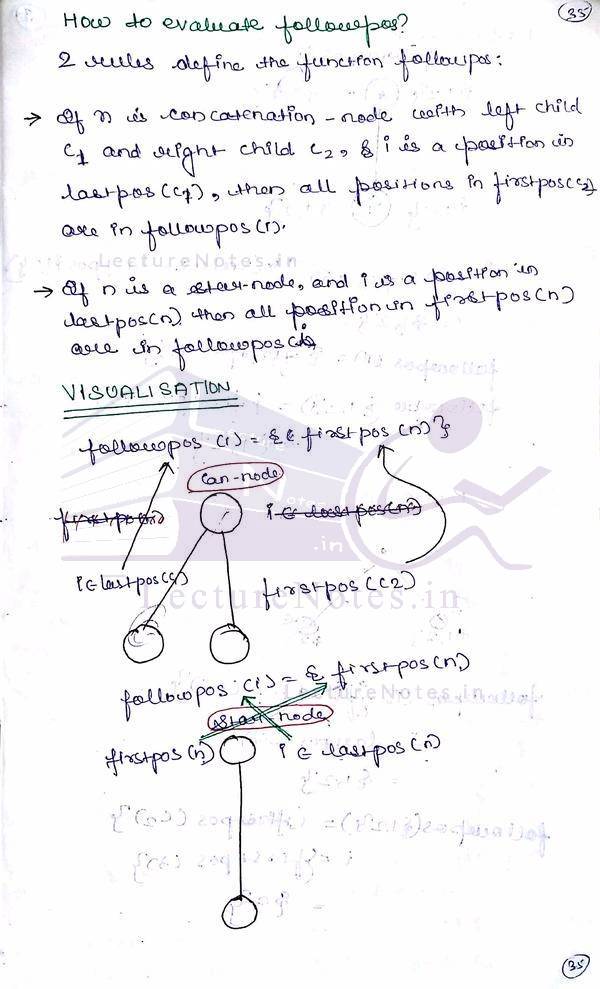 35
How to evaluate followpos?
2 rules define the function followpos:
→ If n is concatenation-node with left child
C1 and right child C2, & i is a position in
lastpos(C1), then all positions in firstpos(C2)
are in followpos(i).
LectureNotes.in
→ If n is a star-node, and i is a position in
lastpos(n) then all position in firstpos(n)
are in followpos(i)
VISUALISATION
followpos (i) = {E firstpos (n)}
Can-node
firstpos(n) i ∈ lastpos(n)
i ∈ lastpos(C1) firstpos(C2)
LectureNotes.in
followpos (i) = { firstpos(n)
LectureNotes.in
star node
firstpos(n) i ∈ lastpos(n)
35